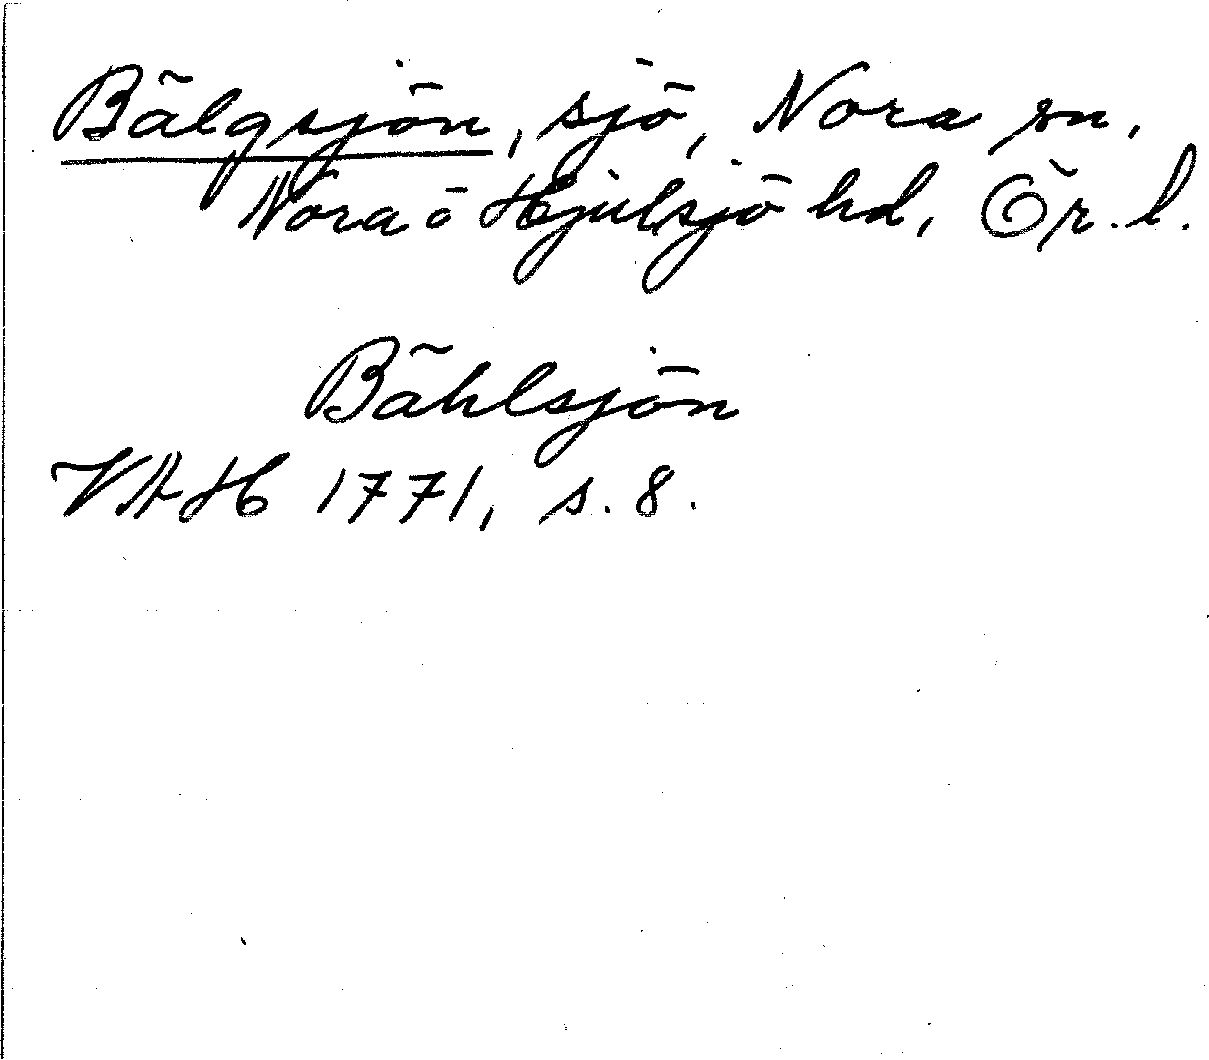 Bälgsjön, sjö, Nora sn,
Nora o Hjulsjö hd, Ör. l.
Bählsjön
VAH 1771, s. 8.